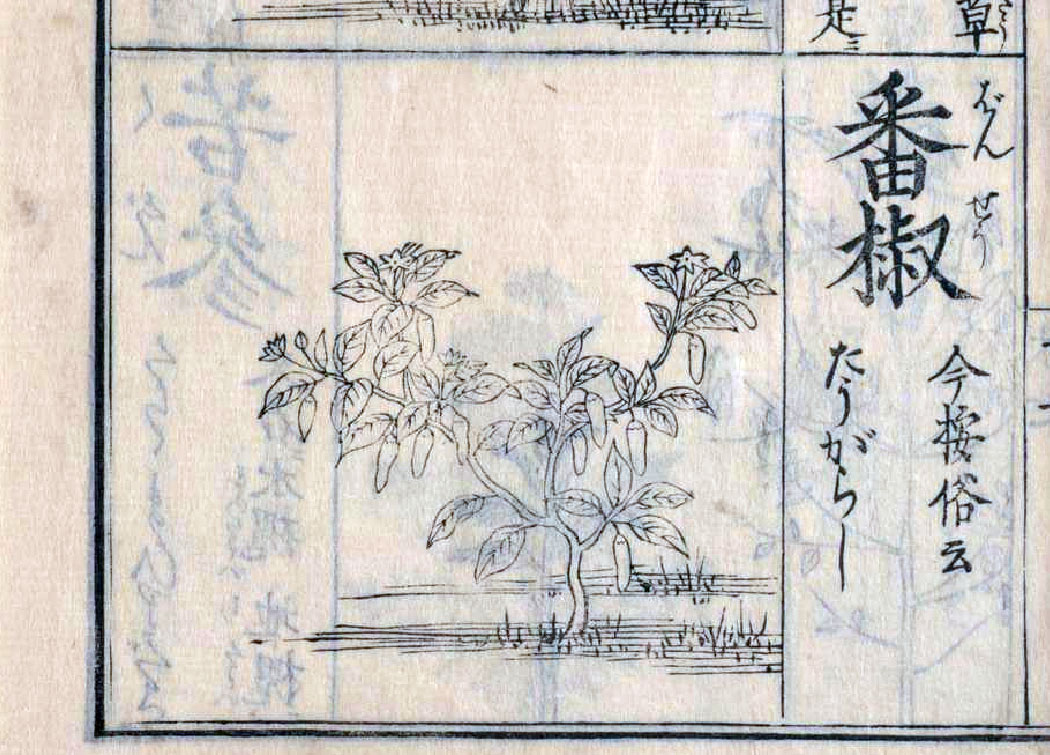 草
是ニ
番椒
ばん せう
今按俗云
たうがらし